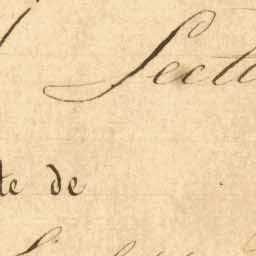 Secti
te de